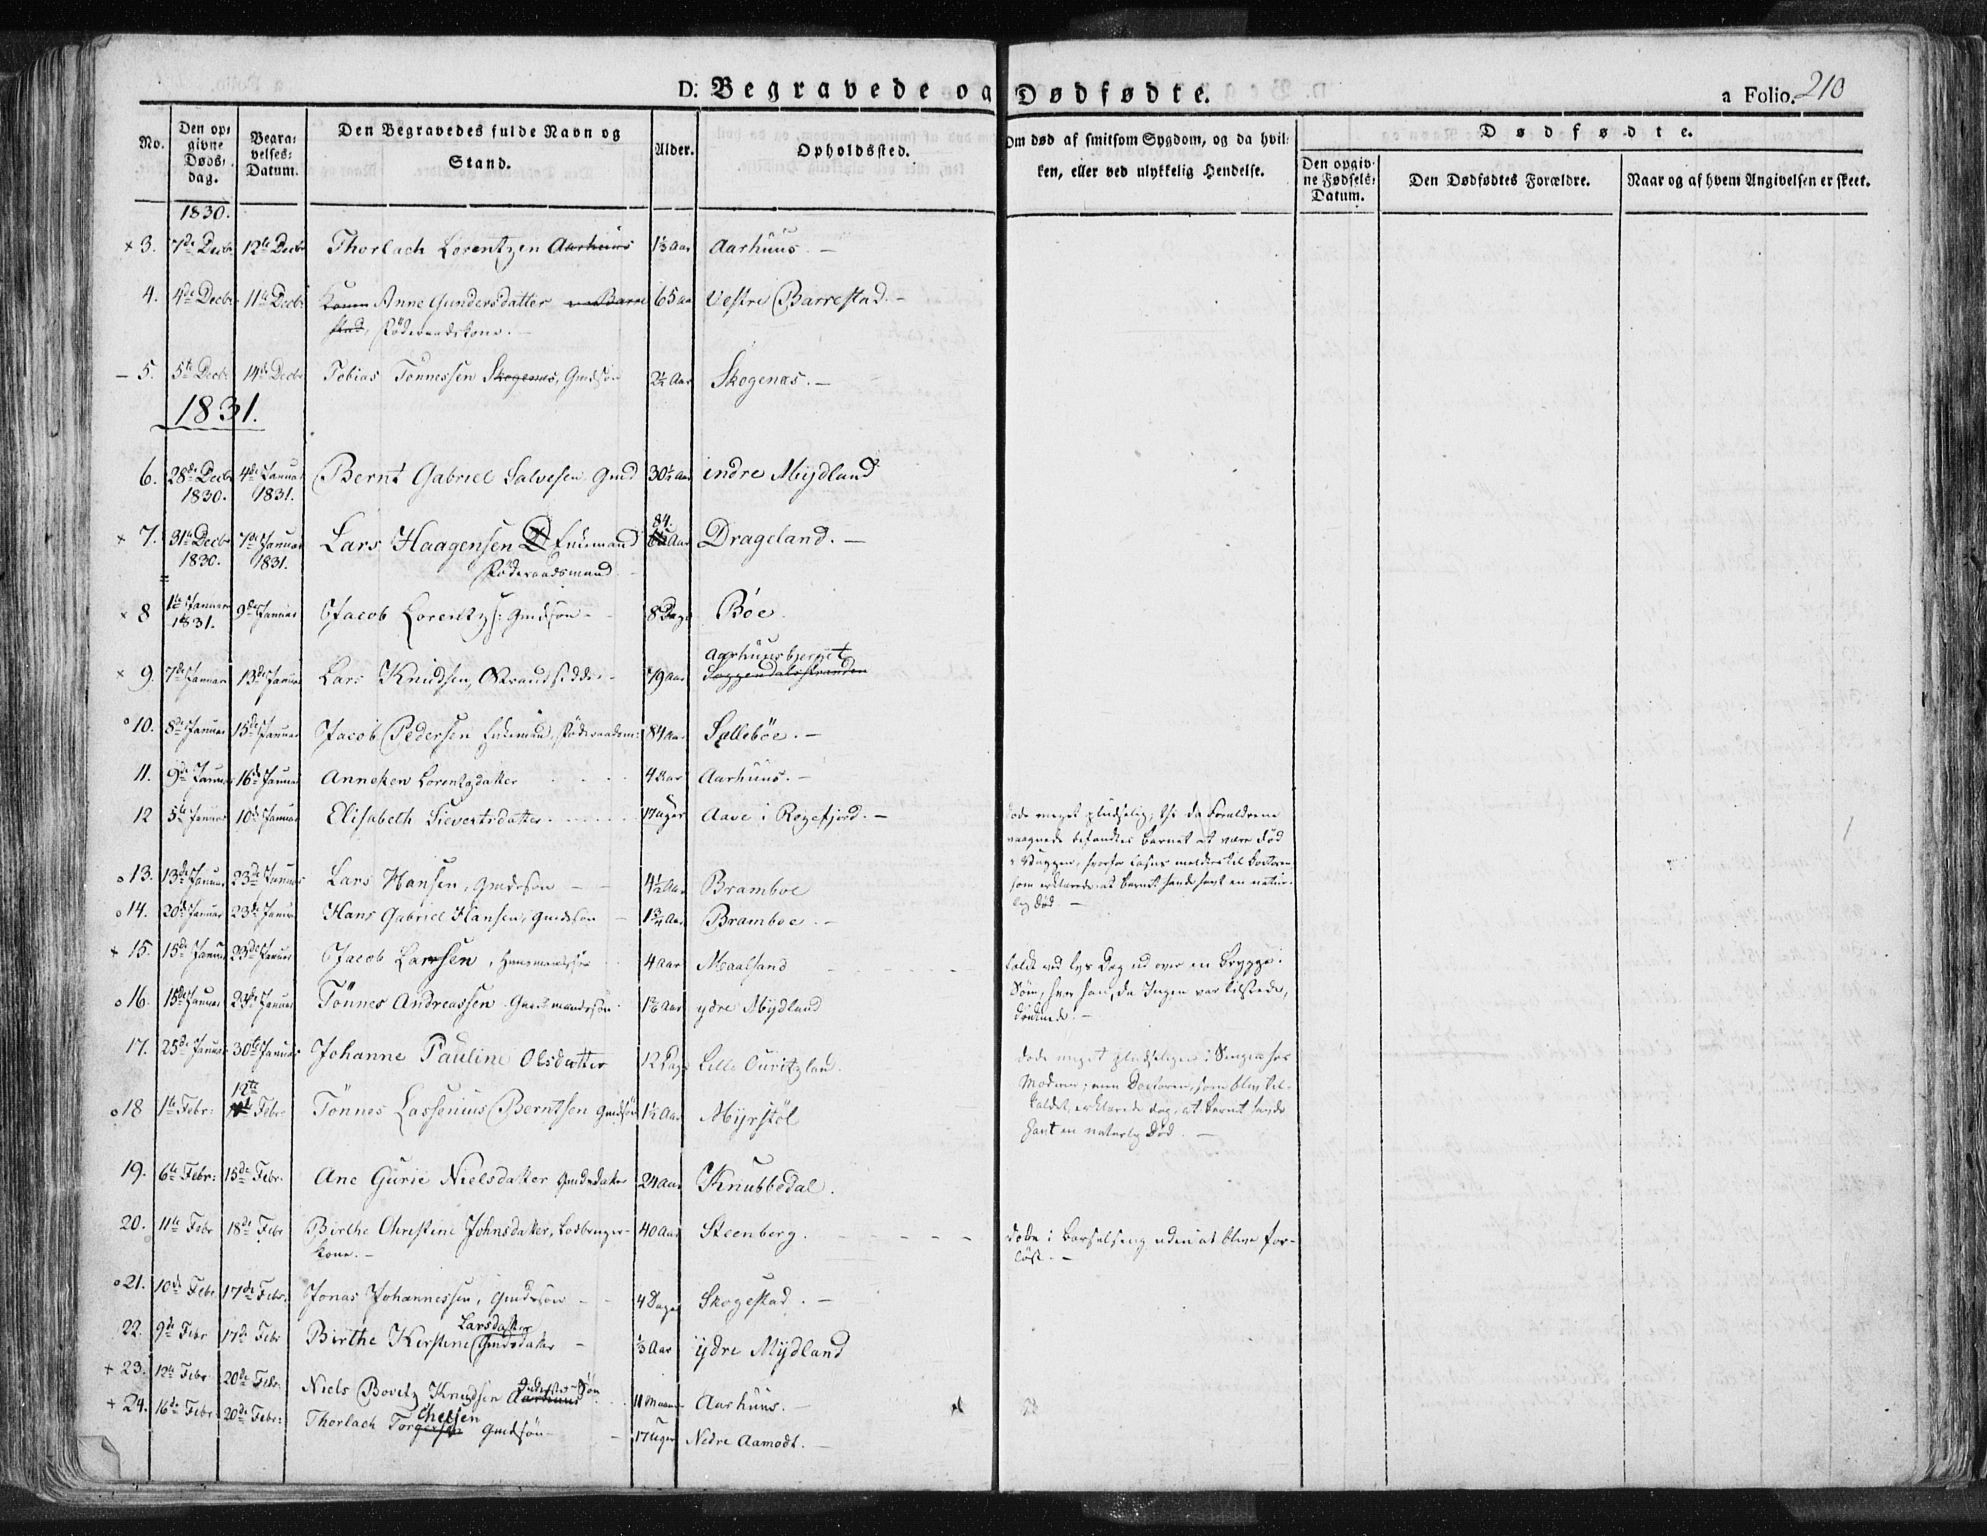 D. Begravede og Dødfødte. a Folio. 210
No.
Den opgivne Døds-dag.
Begravelses-Datum.
Den Begravedes fulde Navn og Stand.
Alder.
Opholdssted.
Om død af smitsom Sygdom, og da hvilken, eller ved ulykkelig Hendelse.
Dødfødte.
Den opgivne Fødsels-Datum.
Den Dødfødtes Forældre.
Naar og af hvem Angivelsen er skeet.
1830.
+ 3. 7de Decbr 12te Decbr Thorlach Lorentzen Aarhuus 1⅓ Aar Aarhuus. –
4. 4de Decbr 11te Decbr Konen Anne Gundersdatter Barre 65 Aar Vestre Barrestad. –
stad, Föderaadskone. –
– 5. 5te Decbr 14de Decbr Tobias Tönnessen Skogenæs, Gmdsön 2½ Aar Skogenæs. –
1831.
6. 28de Decbr 4de Januar Bernt Gabriel Salvesen Gmd 30½ Aar indre Mydland
1830. 1831.
84.
+ 7. 31te Decbr 7de Januar Lars Haagensen D Enkemand Aar Drageland. –
1830. 1831. Föderaadsmand.
+ 8 1te Januar 9de Januar Jacob Lorentzs: Gmdsön – 8 Dage Böe.
1831.
Aarhuusbjerget
+ 9. 7de Januar 13de Januar Lars Knudsen, Strandsidder – 79 Aar Soggendalsstranden
o 10. 8de Januar 15de Januar Jacob Pedersen Enkemand, Föderaadsm: 84 Aar Sællebøe. –
11. 9de Januar 16de Januar Anneken Lorentzdatter 4 Aar Aarhuus. –
12 5te Januar 10de Januar Elisabeth Sievertsdatter 17 Uger Aave i Rægefjord. –
døde meget pludselig, thi da Forældrene
vaagnede befandtes Barnet at være død
i Vuggen, hvorfor Casus meldtes til Doctoren
som erklærede at Barnet havde havt en natur-
lig Død. –
o 13. 13de Januar 23de Januar Lars Hansen, Gmdsön – 4½ Aar Bramboe
o 14. 20de Januar 23de Januar Hans Gabriel Hansen, Gmdsön – 1¾ Aar Bramboe. –
+ 15. 15de Januar 23de Januar Jacob Larsen, Huusmandsön 4 Aar Maalsand
faldt ved lys Dag ud over en Brygge i
Söen, hvor han, da Ingen var tilstede,
druknede. –
o 16. 15de Januar 23de Januar Tönnes Andreassen Gaardmandsön Aar ydre Mydland
17. 25de Januar 30te Januar Johanne Pauline Olsdatter 12 Dage Lille Ouritzland.
døde meget pludseligen i Sengen hos
Moderen; men Doctoren, som blev til-
kaldet, erklærede dog, at Barnet havde
havt en naturlig Død. –
12te
o 18 1te Febr: Febr Tönnes Lassenius Berntsen Gmdsön 1½ Aar Myrstöl
19. 6te Febr: 15de Febr. Ane Gurie Nielsdatter Gmdsdatter 24 Aar Knubbedal.
20. 11te Febr 18de Febr Birthe Christine Johnsdatter, Lodbruger- 40 Aar Steenberg.
kone. –
døde i Barselseng uden at blive for-
löst. –
o 21. 10de Febr 17de Febr. Jonas Johannessen, Gmdsön – 4 Dage Skogestad. –
Larsdatter
22. 9de Febr 17de Febr Birthe Kirstine Gmdsdatter – ⅓ Aar ydre Mydland
+ 23. 12te Febr 20de Febr. Niels Bovitz Knudsen Aarhuus Sön 11 Maaneder Aarhuus. –
+ 24. 16de Febr. 20de Febr: Thorlach Torgersen Gmdsön – 17 Uger Nedre Aamodt. –
chelsen